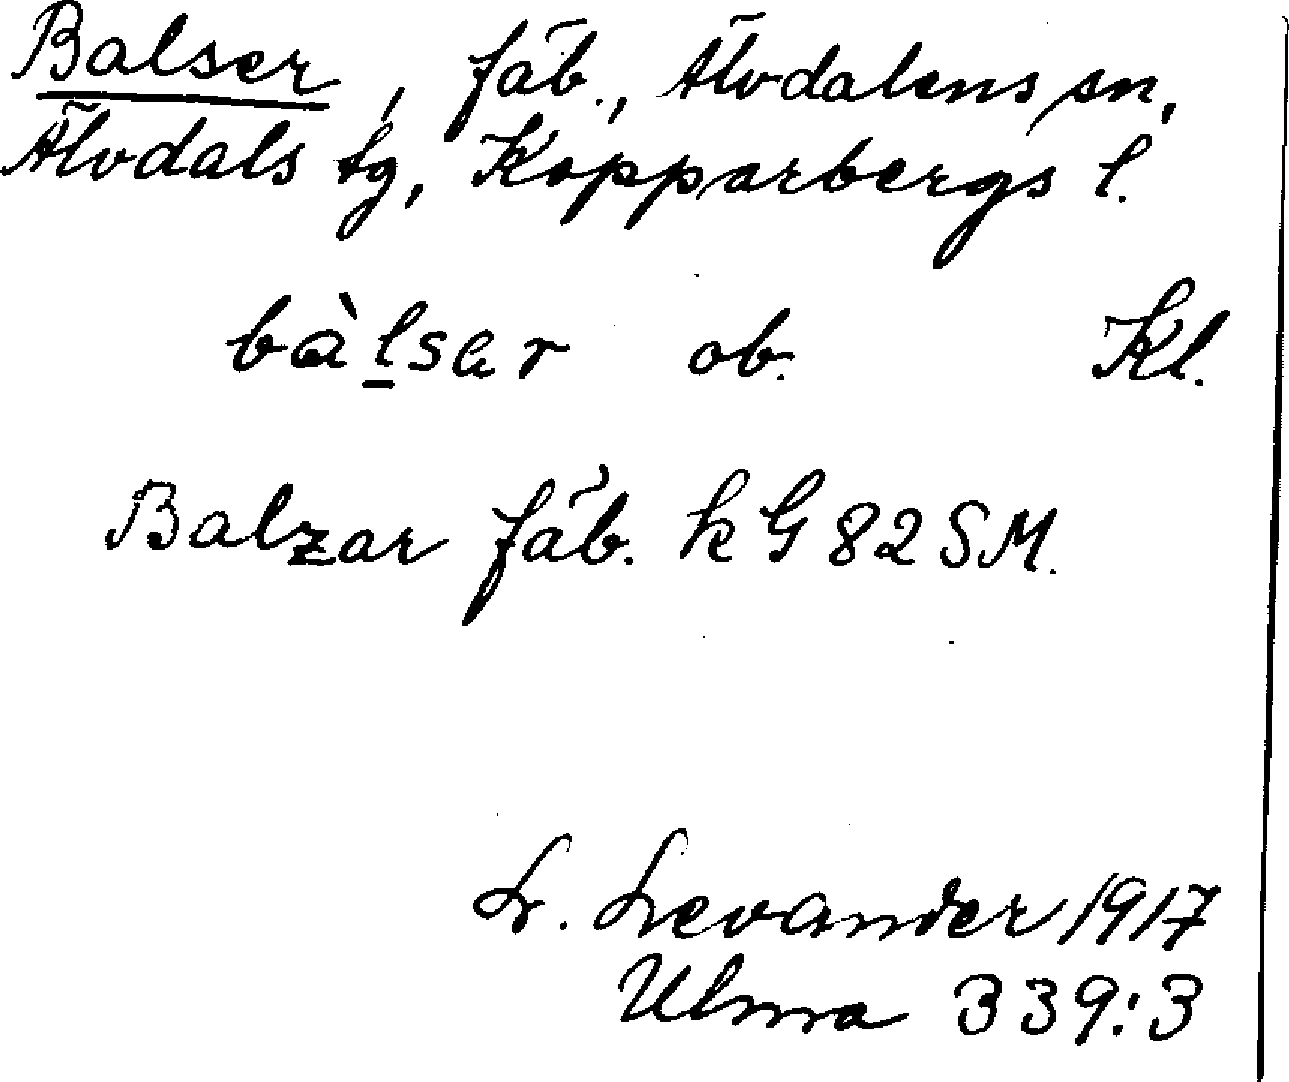 Balser, fäb., Älvdalens sn,
Älvdals tg, Kopparbergs l.
bàl̠sar ob. Kl.
Balzar fäb. kG 82 SM.
L. Levander 1917
Ulma 339:3